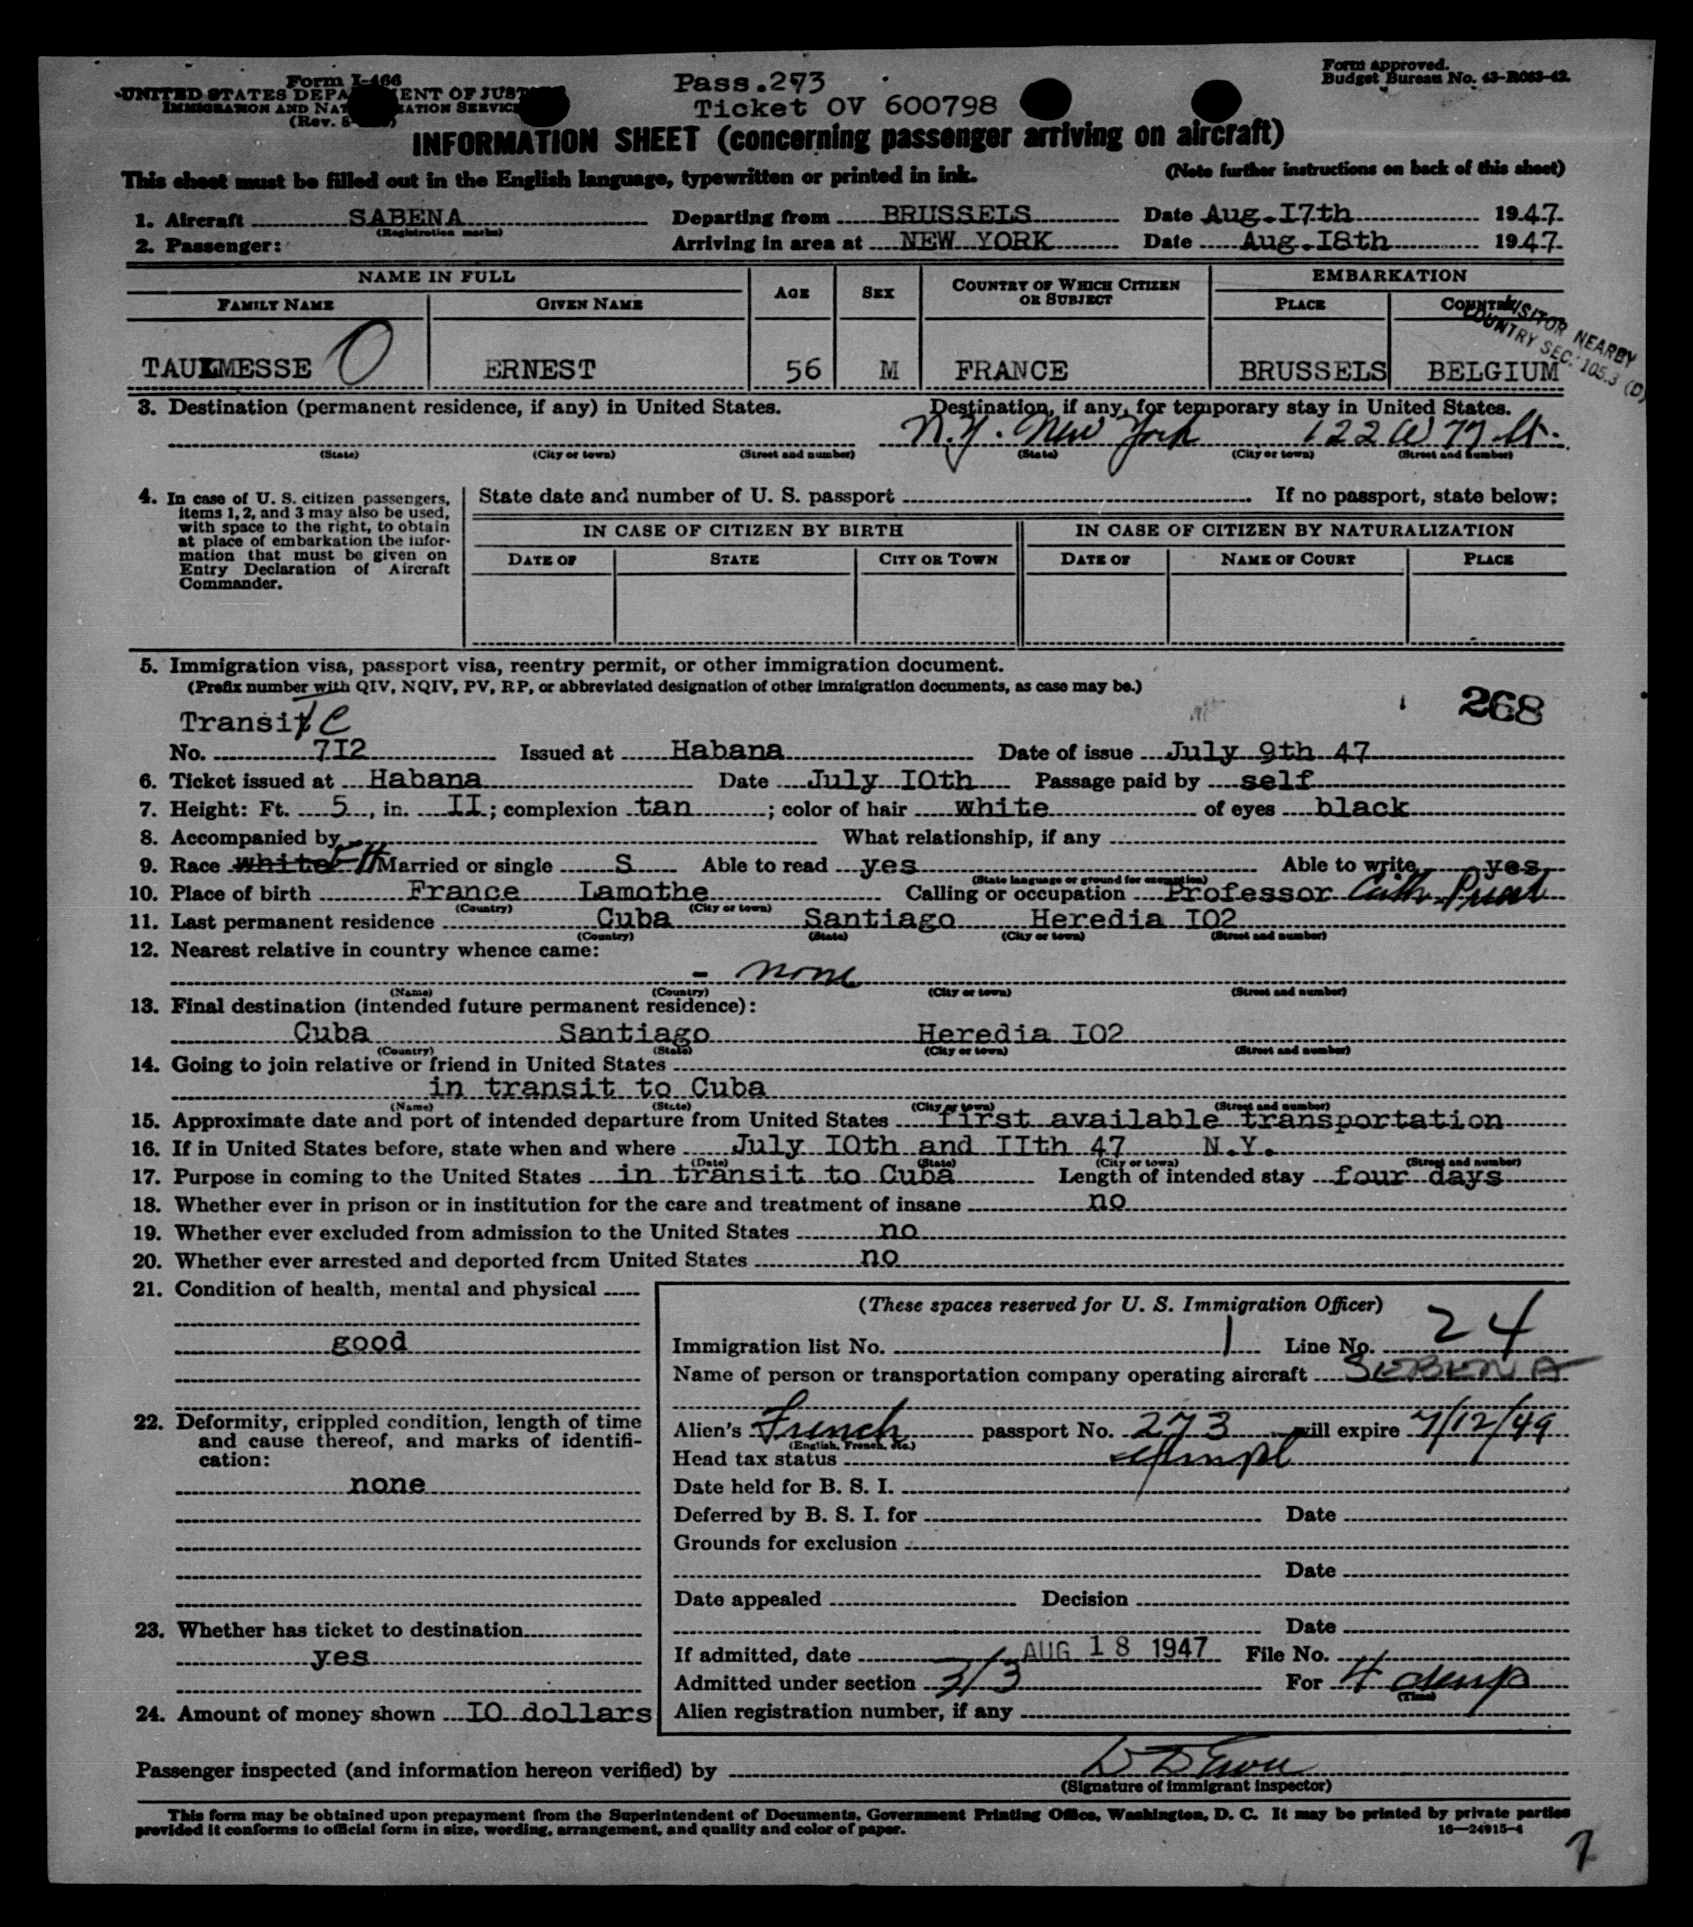 Form I-466
UNITED STATES DEPARTMENT OF JUSTICE
IMMIGRATION AND NATURALIZATION SERVICE
(Rev.
Pass.273
Ticket OV 600798
Form approved.
Budget Bureau No. 43-R083-42.
INFORMATION SHEET (concerning passenger arriving on aircraft)
This sheet must be filled out in the English language, typewritten or printed in ink.
(Note further instructions on back of this sheet)
1. Aircraft SABENA Departing from BRUSSELS Date Aug.I7th 1947
(Registration marks)
2. Passenger: Arriving in area at NEW YORK Date Aug.I8th 1947
NAME IN FULL AGE SEX COUNTRY OF WHICH CITIZEN OR SUBJECT EMBARKATION
FAMILY NAME GIVEN NAME PLACE COUNTRY
VISITOR NEARBY
COUNTRY SEC. 105.3 (D)
TAULMESSE O ERNEST 56 M FRANCE BRUSSELS BELGIUM
3. Destination (permanent residence, if any) in United States. Destination, if any, for temporary stay in United States.
N.Y. New York 122 W 77 St.
(State) (City or town) (Street and number) (State) (City or town) (Street and number)
4. In case of U. S. citizen passengers, items 1, 2, and 3 may also be used, with space to the right, to obtain at place of embarkation the information that must be given on Entry Declaration of Aircraft Commander.
State date and number of U. S. passport If no passport, state below:
IN CASE OF CITIZEN BY BIRTH IN CASE OF CITIZEN BY NATURALIZATION
DATE OF STATE CITY OR TOWN DATE OF NAME OF COURT PLACE
5. Immigration visa, passport visa, reentry permit, or other immigration document.
(Prefix number with QIV, NQIV, PV, RP, or abbreviated designation of other immigration documents, as case may be.)
268
Transit
No. 7I2 Issued at Habana Date of issue July 9th 47
6. Ticket issued at Habana Date July IOth Passage paid by self
7. Height: Ft. 5, in. II; complexion tan; color of hair white of eyes black
8. Accompanied by What relationship, if any
9. Race white Married or single S Able to read yes Able to write yes
(State language or ground for exemption)
10. Place of birth France Lamothe Calling or occupation Professor Cath. Priest
(Country) (City or town)
11. Last permanent residence Cuba Santiago Heredia IO2
(Country) (State) (City or town) (Street and number)
12. Nearest relative in country whence came:
- none
(Name) (Country) (City or town) (Street and number)
13. Final destination (intended future permanent residence):
Cuba Santiago Heredia IO2
(Country) (State) (City or town) (Street and number)
14. Going to join relative or friend in United States
in transit to Cuba
(Name) (State) (City or town) (Street and number)
15. Approximate date and port of intended departure from United States first available transportation
16. If in United States before, state when and where July IOth and IIth 47 N.Y.
(Date) (State) (City or town) (Street and number)
17. Purpose in coming to the United States in transit to Cuba Length of intended stay four days
18. Whether ever in prison or in institution for the care and treatment of insane no
19. Whether ever excluded from admission to the United States no
20. Whether ever arrested and deported from United States no
21. Condition of health, mental and physical
good
22. Deformity, crippled condition, length of time and cause thereof, and marks of identification:
none
23. Whether has ticket to destination
yes
24. Amount of money shown IO dollars
(These spaces reserved for U. S. Immigration Officer)
Immigration list No. 1 Line No. 24
Name of person or transportation company operating aircraft SEBENA
Alien's French passport No. 273 will expire 7/12/49
(English, French, etc.)
Head tax status exempt
Date held for B. S. I.
Deferred by B. S. I. for Date
Grounds for exclusion
Date
Date appealed Decision
Date
If admitted, date AUG 18 1947 File No.
Admitted under section 3/3 For 4 days
(Time)
Alien registration number, if any
Passenger inspected (and information hereon verified) by
(Signature of immigrant inspector)
This form may be obtained upon prepayment from the Superintendent of Documents, Government Printing Office, Washington, D. C. It may be printed by private parties
provided it conforms to official form in size, wording, arrangement, and quality and color of paper.
16—24915-4